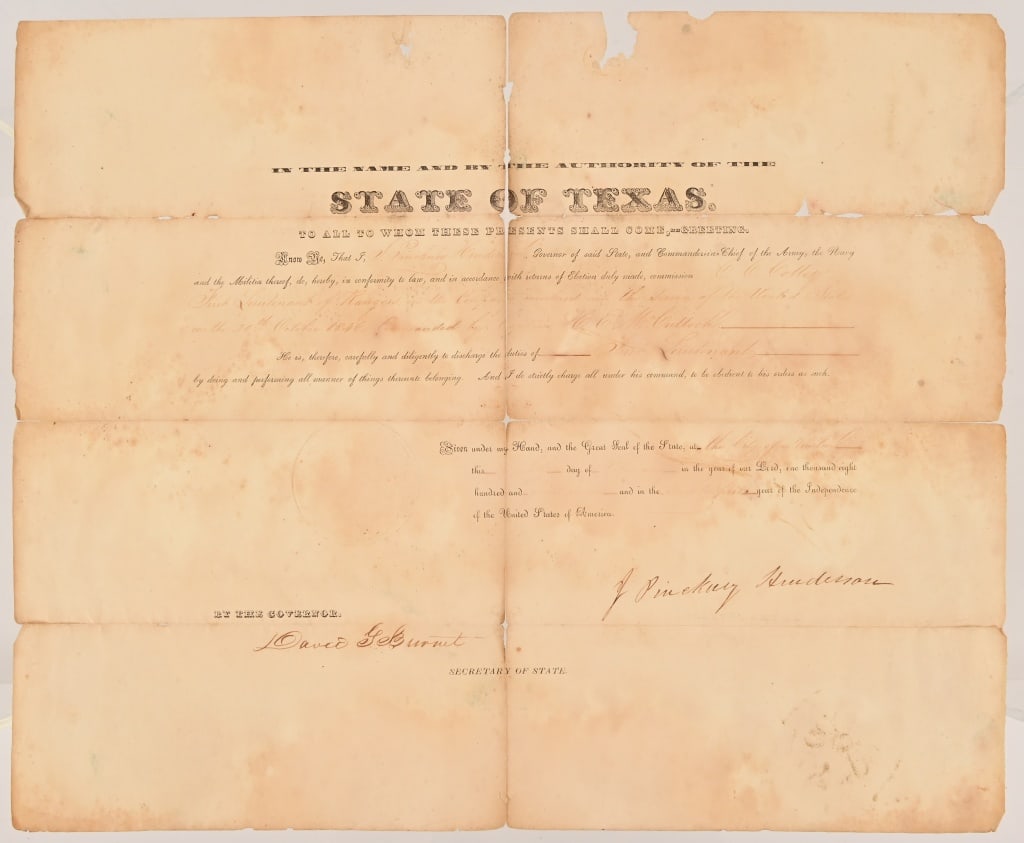 IN THE NAME AND BY THE AUTHORITY OF THE
STATE OF TEXAS.
TO ALL TO WHOM THESE PRESENTS SHALL COME,--GREETING.
Know Ye, That I, J Pinckney Henderson, Governor of said State, and Commander in Chief of the Army, the Navy
and the Militia thereof, do, hereby, in conformity to law, and in accordance with returns of Election duly made, commission
Lieutenant of Rangers in the Company in the
20th October 1846 Commanded by H. E. McCulloch
He is, therefore, carefully and diligently to discharge the duties of Lieutenant
by doing and performing all manner of things thereunto belonging. And I do strictly charge all under his command, to be obedient to his orders as such.
Given under my Hand, and the Great Seal of the State, at the City of
this day of in the year of our Lord, one thousand eight
hundred and and in the year of the Independence
of the United States of America.
J Pinckney Henderson
BY THE GOVERNOR.
David G Burnet
SECRETARY OF STATE.